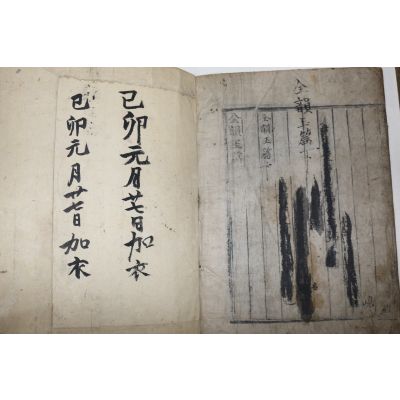 全韻玉篇
全韻玉篇
全韻玉篇
己卯元月廿七日加衣
己卯元月廿七日加衣